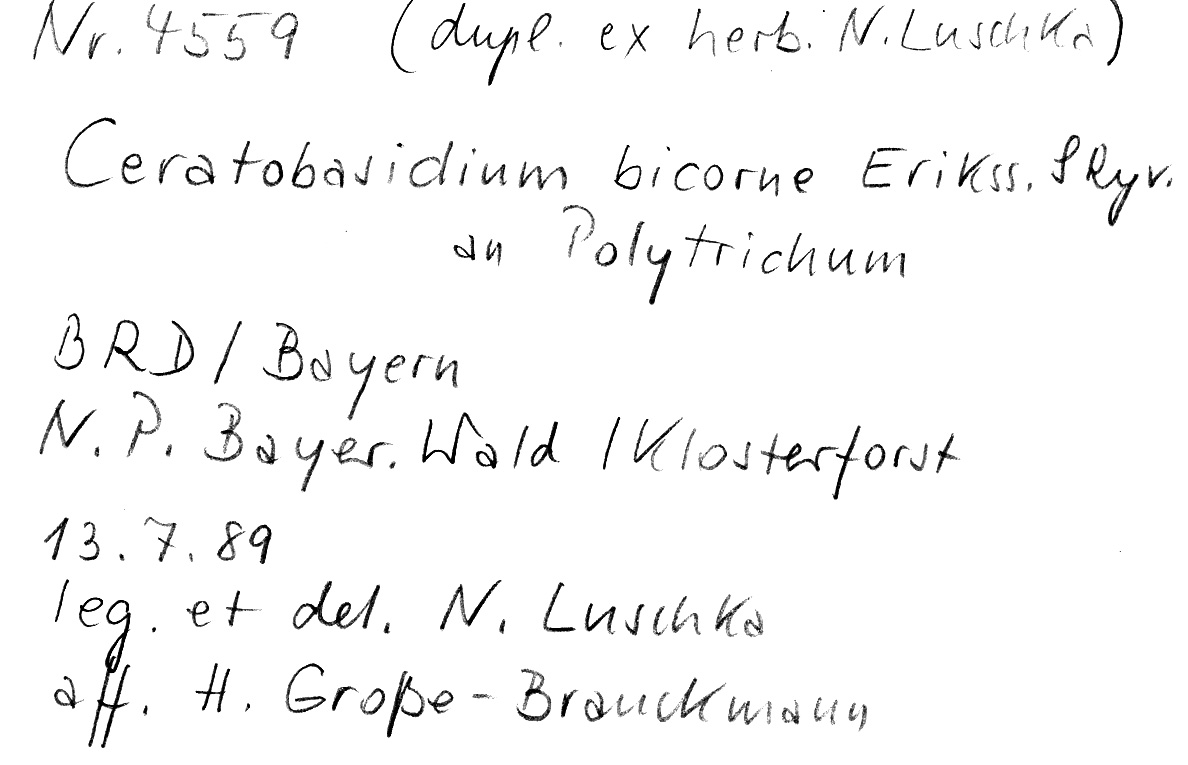 Nr. 4559 (dupl. ex herb. N. Luschka)
Ceratobasidium bicorne Erikss. & Ryv.
an Polytrichum
BRD / Bayern
N. P. Bayer. Wald / Klosterforst
13.7.89
leg. et det. N. Luschka
aff. H. Große-Brauckmann